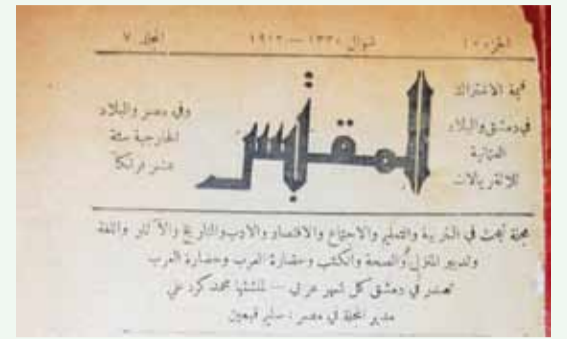 الجزء ١٠
شوال ١٣٣٠ — ١٩١٢
المجلد ٧
قيمة الاشتراك
في دمشق والبلاد
العثمانية
ثلاثة ريالات
المقتبس
وفي مصر والبلاد
الخارجية ستة
عشر فرنكاً
مجلة تبحث في التربية والتعليم والاجتماع والاقتصاد والادب والتاريخ والآثار واللغة
وتدبير المنزل والصحة والكتب وحضارة العرب وحضارة الغرب
تصدر في دمشق كل شهر عربي — لمنشئها محمد كرد علي
مدير المجلة في مصر : سليم قبعين